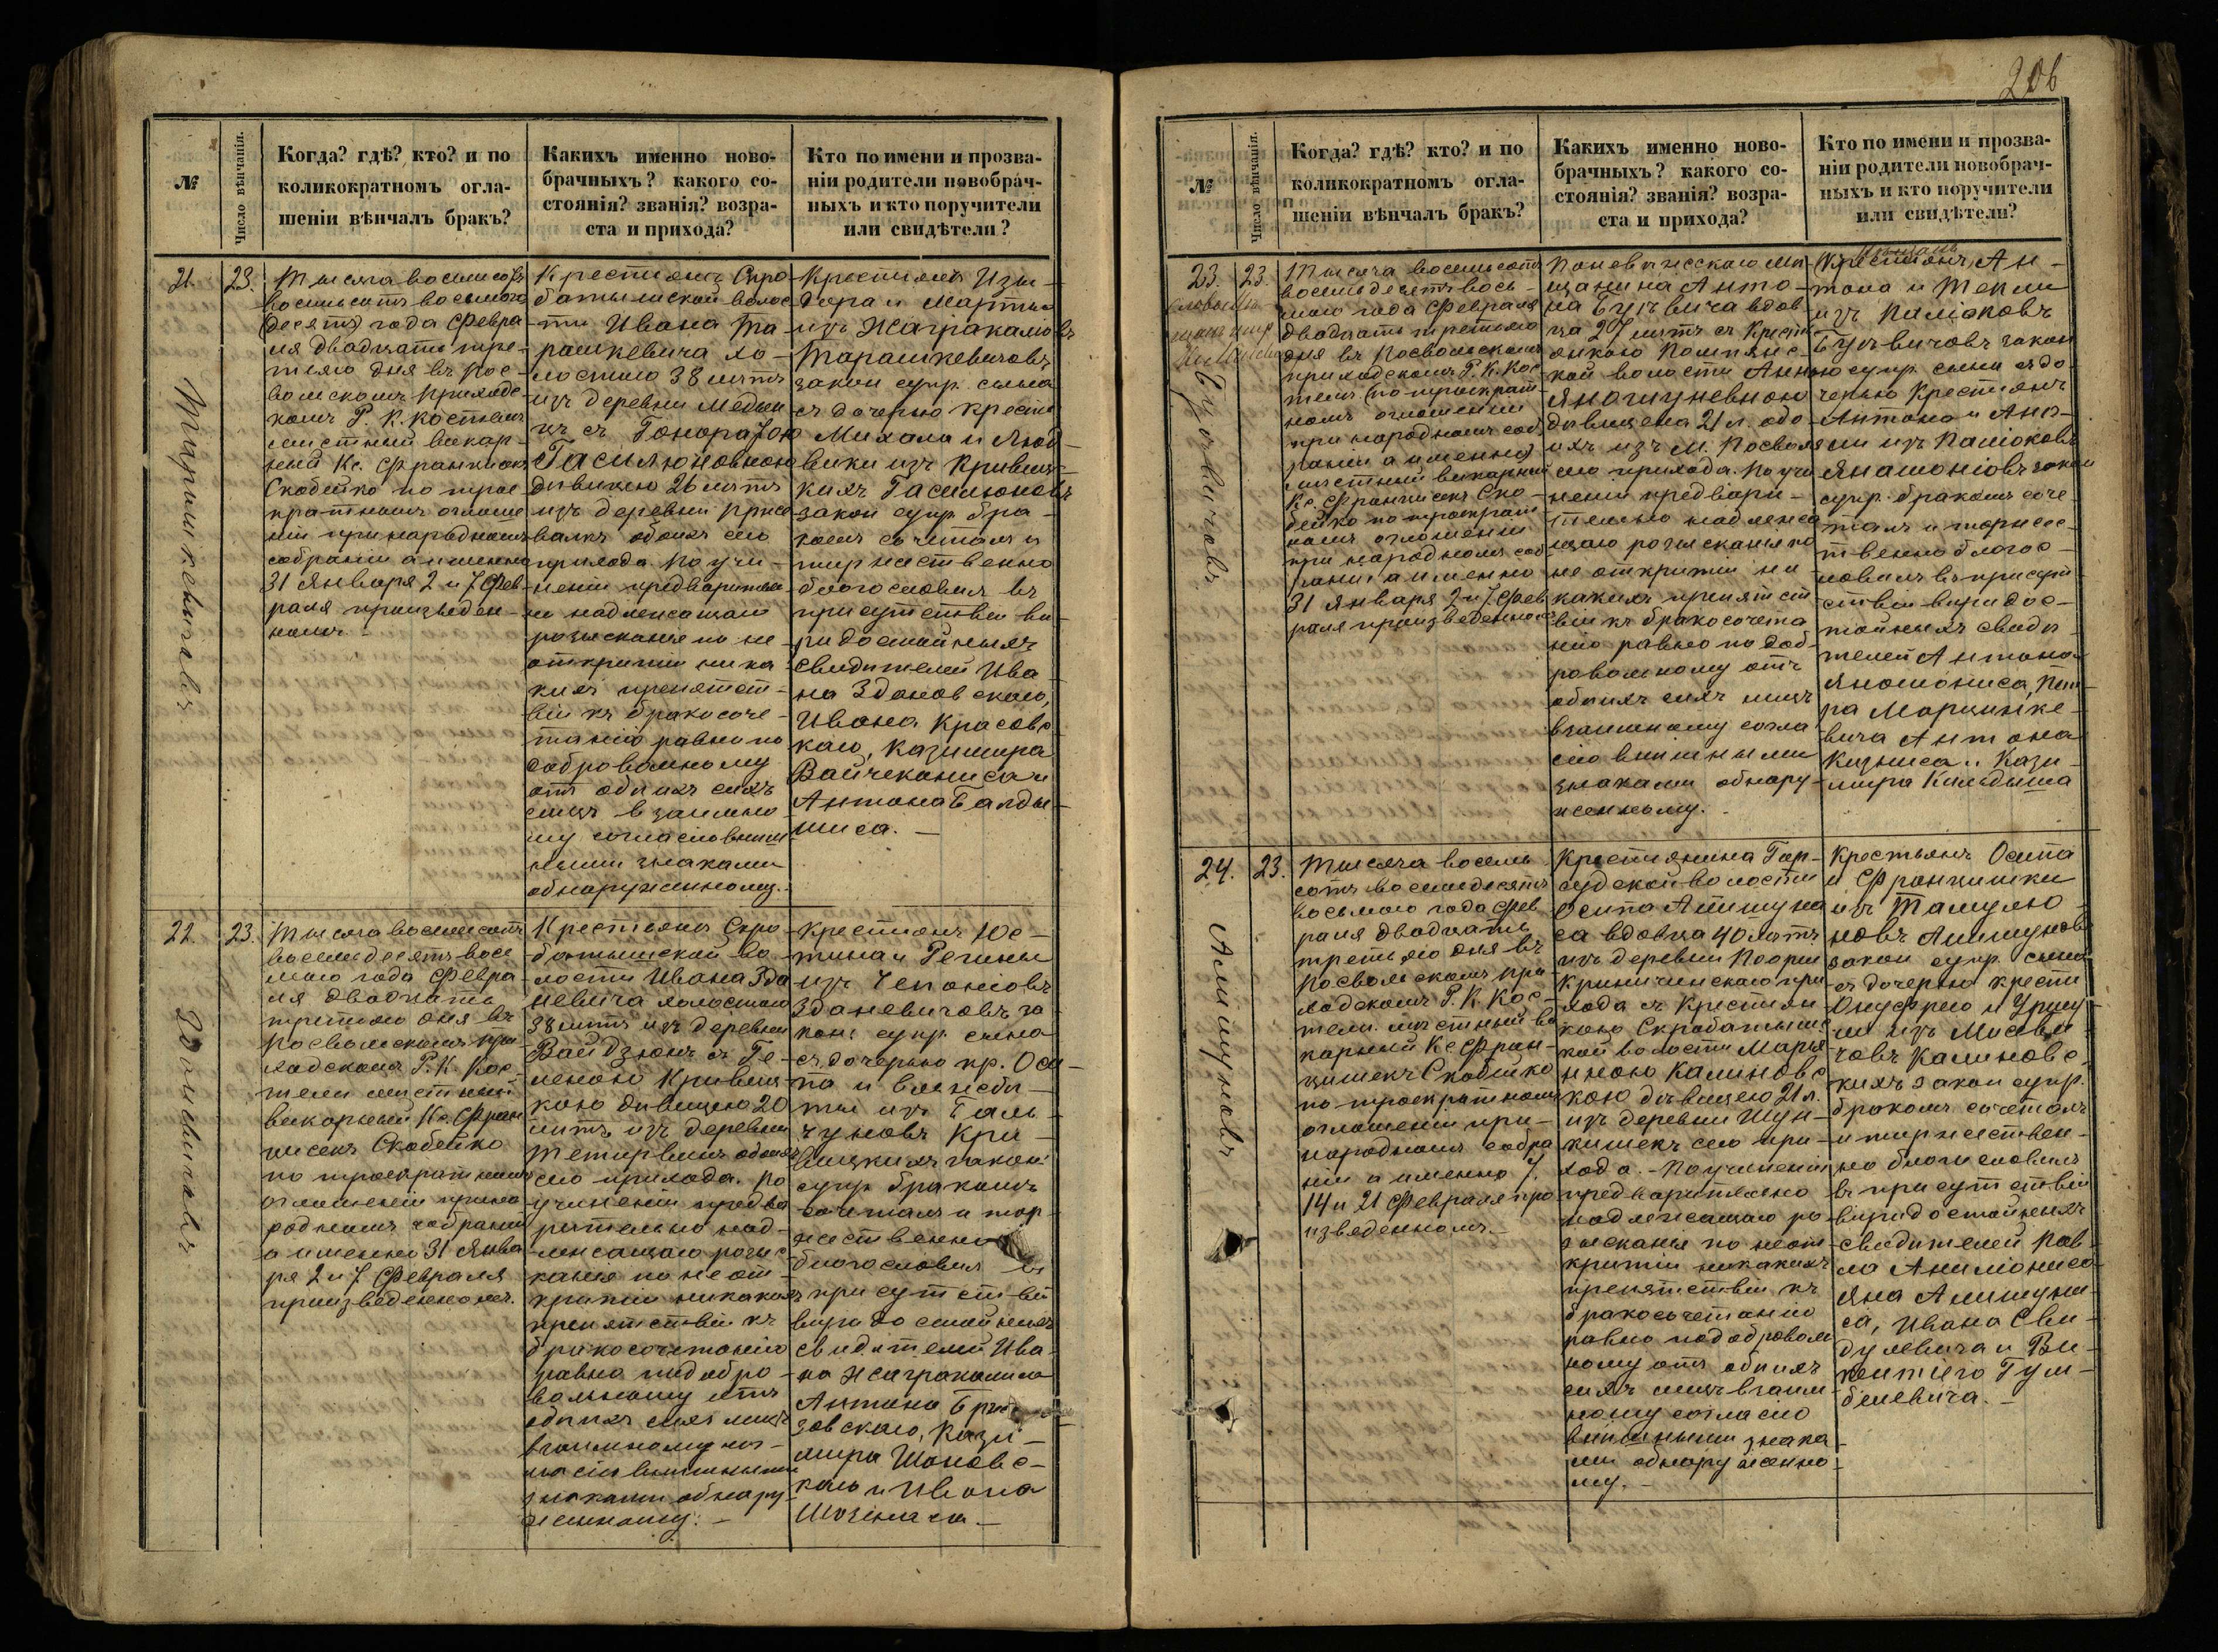 206
№
Число вѣнчанія.
Когда? гдѣ? кто? и по
коликократномъ огла-
шеніи вѣнчалъ бракъ?
Какихъ именно ново-
брачныхъ? какого со-
стоянія? званія? возра-
ста и прихода?
Кто по имени и прозва-
ніи родители новобрач-
ныхъ и кто поручители
или свидѣтели?
21.
23.
Тысяча восемьсотъ
восемьсотъ восьмого
(десятъ) года Февра
ля двадцать тре-
тьяго дня въ Пос-
вольскомъ приходс-
комъ Р. К. Костелѣ
мѣстный викар-
ный Кс. Францискъ
Скобейко по трое
кратномъ оглаше
ніи при народномъ
собраніи а именно
31 Января 2 и 7 Фев
раля произведен-
номъ
Крестьянъ Скро
ботышской волос
ти Ивана Та-
рашкевича хо-
лостаго 38 лѣтъ
изъ деревни
съ Гоноратою
Гасилюновною
дѣвицею 26 лѣтъ
изъ деревни
обоихъ сего
прихода. По учи-
неніи предварительн
о надлежащаго
розысканія по не
открытіи ника
кихъ препятст-
вій къ бракосоче-
танію равно по
добровольному
отъ обоихъ сихъ
лицъ взаимно
му согласію внѣш
ными знаками
обнаруженному.
Крестьянъ Изи-
дора и Марты
изъ Жагракалювъ
Тарашкевичовъ
закон супр. сына
съ дочерью крестья
Михала и Люд-
вики изъ Кривиц-
кихъ Гасилюновъ
закон супр. бра-
комъ сочеталъ и
торжественно
благословилъ въ
присутствіи вѣ-
ридостойныхъ
свидѣтелей Ива-
на Здановскаго,
Ивана Красовс
каго, Казимира
Вайчеканиса и
Антона Балды-
шиса. —
Тарашкевичовъ
22
23.
Тысяча восемьсотъ
восемьдесятъ вось
маго года Февра
ля двадцать
третьяго дня въ
Посвольскомъ при
ходскомъ Р. К. Кос-
телѣ мѣстный
викарный Кс. Фран
цисекъ Скобейко
по троекратномъ
оглашеніи при на
родномъ собраніи
а именно 31 Янва
ря 2 и 7 Февраля
произведенномъ.
Крестьянъ Скро-
ботышской во-
лости Ивана Зда
невича холостаго
38 лѣтъ изъ деревни
Вайдзюнъ съ Ге-
леною Кривиц-
кою дѣвицею 20
лѣтъ изъ деревни
обоихъ
сего прихода. По
учиненіи предва
рительно над-
лежащаго розыс
канія по не от-
крытіи никакихъ
препятствій къ
бракосочетанію
равно по добро-
вольному отъ
обоихъ сихъ лицъ
взаимному сог-
ласію внѣшными
знаками обнару-
женному. —
Крестьянъ Юс-
тина и Регины
изъ Чепонювъ
Зданевичовъ за
кон: супр. сына
съ дочерью кр. Оси-
па и Елисабе-
ты изъ Галь-
чуновъ Кри-
вицкихъ закон:
супр. бракомъ
сочеталъ и тор-
жественно
благословилъ въ
присутствіи
вѣридостойныхъ
свидѣтелей Ива-
на Жагракалиса
Антона
зовскаго, Кази-
мира Шановс-
каго и Ивана
—
Зданевичовъ
№
Число вѣнчанія.
Когда? гдѣ? кто? и по
коликократномъ огла-
шеніи вѣнчалъ бракъ?
Какихъ именно ново-
брачныхъ? какого со-
стоянія? званія? возра-
ста и прихода?
Кто по имени и прозва-
ніи родители новобрач-
ныхъ и кто поручители
или свидѣтели?
23.
23.
Буцевичовъ
Тысяча восемьсотъ
восемьдесятъ вось-
маго года Февраля
двадцать третьяго
дня въ Посвольскомъ
приходскомъ Р. К. Кос-
телѣ (по троекрат
номъ оглашеніи
при народномъ соб
раніи а именно)
мѣстный викарный
Кс. Францисекъ Ско-
бейко по троекрат
номъ оглашеніи
при народномъ соб
раніи а именно
31 Января 2 и 7 Фев
раля произведенномъ
Поневѣжскаго мѣ
щанина Анто-
на Буцевича вдов
ца 27 лѣтъ съ Крестья
онкою Помпянс-
кой волости Анною
дѣвицею 21 л. обо-
ихъ изъ М. Посволя
сего прихода. По учи
неніи предвари-
тельно надлежа
щаго розысканія по
не открытіи ни
какихъ препятст
вій къ бракосочета
нію равно по доб
ровольному отъ
обоихъ сихъ лицъ
взаимному согла
сію внѣшными
знаками обнару-
женному.
Крестьянъ Ан-
тона и Теклы
изъ Палюковъ
Буцевичовъ закон
супр. сына съ до-
черью Крестьянъ
Антона и Ан-
ны изъ Палюковъ
закон
супр. бракомъ соче
талъ и торжес-
твенно благос-
ловилъ въ присут
ствіи вѣридос-
тойныхъ свидѣ
телей Антона
Яношониса, Пет
ра Марцинке-
вича Антона
и Кази-
мира Кильдыша
24.
23.
Тысяча восемь
сотъ восемьдесятъ
восьмого года Фев
раля двадцать
третьяго дня въ
Посвольскомъ при
ходскомъ Р. К. Кос-
телѣ мѣстный ви
карный Кс Фран-
цишекъ Скобейко
по троекратномъ
оглашеніи при-
народномъ собра
ніи а именно 7.
14 и 21 Февраля про
изведенномъ. —
Крестьянина
волости
Осипа Алишуна
са вдовца 40 лѣтъ
изъ деревни
при
хода съ Крестьян
кою Скробатышс
кой волости Марья
нною Калиновс
кою дѣвицею 21 л.
изъ деревни Шун-
кишекъ сего при-
хода. — По учиненіи
предварительно
надлежащаго ро
зысканія по неот
крытіи никакихъ
препятствій къ
бракосочетанію
равно по доброволь
ному отъ обоихъ
сихъ лицъ взаим
ному согласію
внѣшными знака
ми обнаруженно
му. —
Крестьянъ Осипа
и Францишки
изъ Тамулю
новъ Алишуновъ
закон супр. сына
съ дочерью крестья
Онуфрею и Уршу
ли изъ Мисеви-
човъ Калиновс-
кихъ закон супр.
бракомъ сочеталъ
и торжествен-
но благословилъ
въ присутствіи
вѣридостойныхъ
свидѣтелей Пав
ла
Яна Алишуни
са, Ивана Сви-
дулевича и Ви-
кентіего Гум-
билевича. —
Алишуновъ